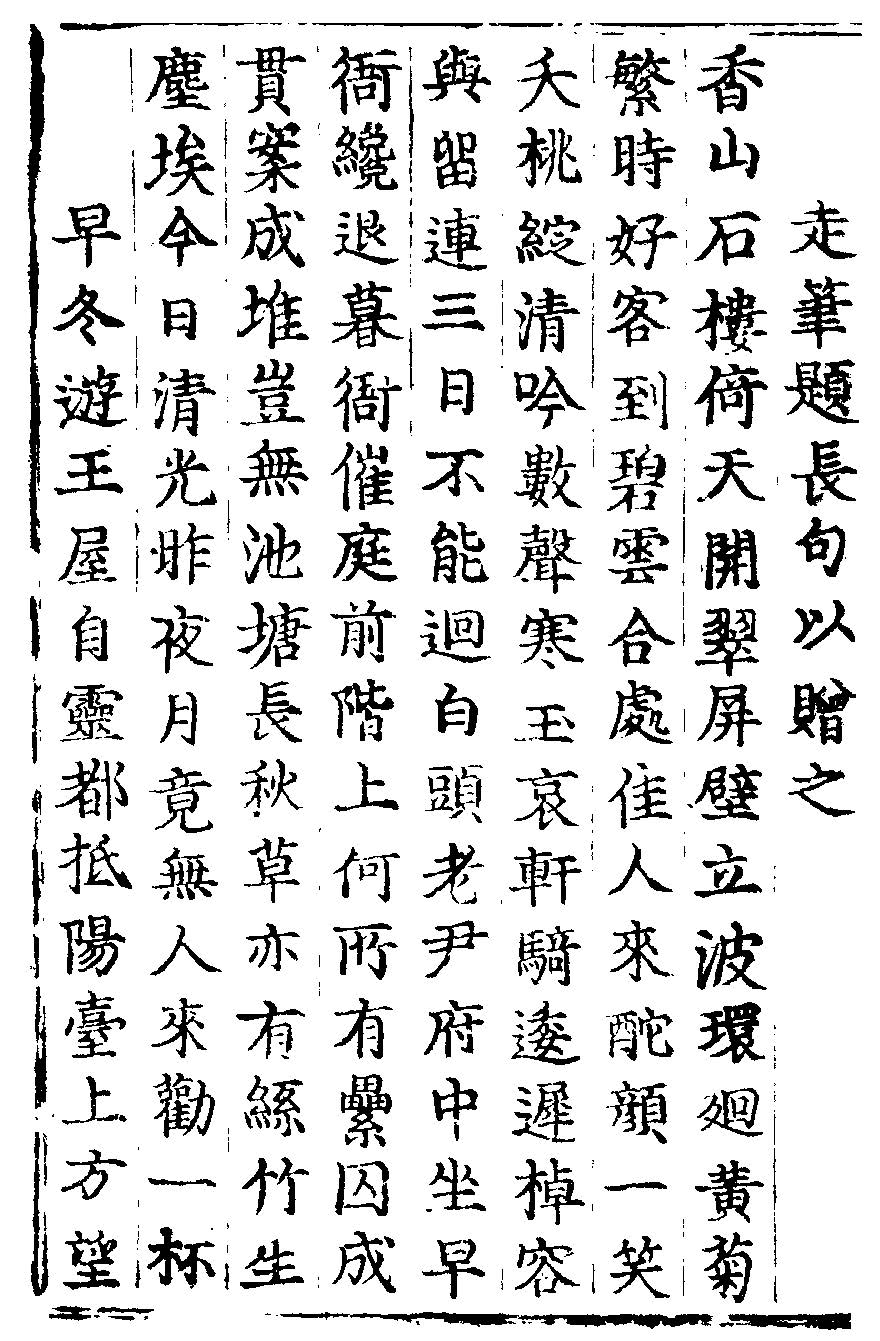 走筆題長句以贈之
香山石樓倚天開翠屏壁立波環廻黃菊
繁時好客到碧雲合處佳人來酡顏一笑
夭桃綻清吟數聲寒玉哀軒騎逶遲棹容
與留連三日不能迴白頭老尹府中坐早
衙纔退暮衙催庭前階上何所有纍囚成
貫案成堆豈無池塘長秋草亦有絲竹生
塵埃今日清光昨夜月竟無人來勸一杯
早冬遊王屋自靈都抵陽臺上方望